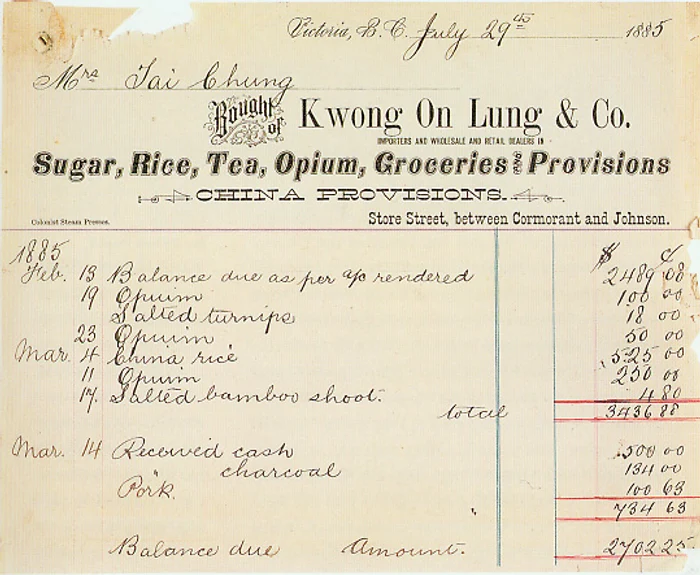 Victoria, B.C. July 29th 1885
Mrs Tai Chung
Bought of Kwong On Lung & Co.
IMPORTERS AND WHOLESALE AND RETAIL DEALERS IN
Sugar, Rice, Tea, Opium, Groceries and Provisions
CHINA PROVISIONS.
Colonist Steam Presses. Store Street, between Cormorant and Johnson.
1885 $ ¢
Feb. 13 Balance due as per a/c rendered 2489 08
19 Opuim 100 00
Salted turnips 18 00
23 Opuim 50 00
Mar. 4 China rice 525 00
11 Opuim 250 00
17. Salted bamboo shoot. 4 80
total 3436 88
Mar. 14 Received cash 500 00
charcoal 134 00
Pork. 100 63
734 63
Balance due Amount. 2702 25